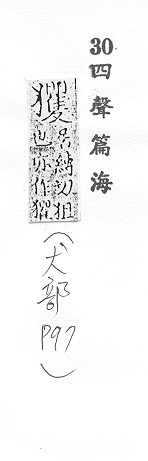 30 四聲篇海
縛切狙
也亦作
(犬部 P97)